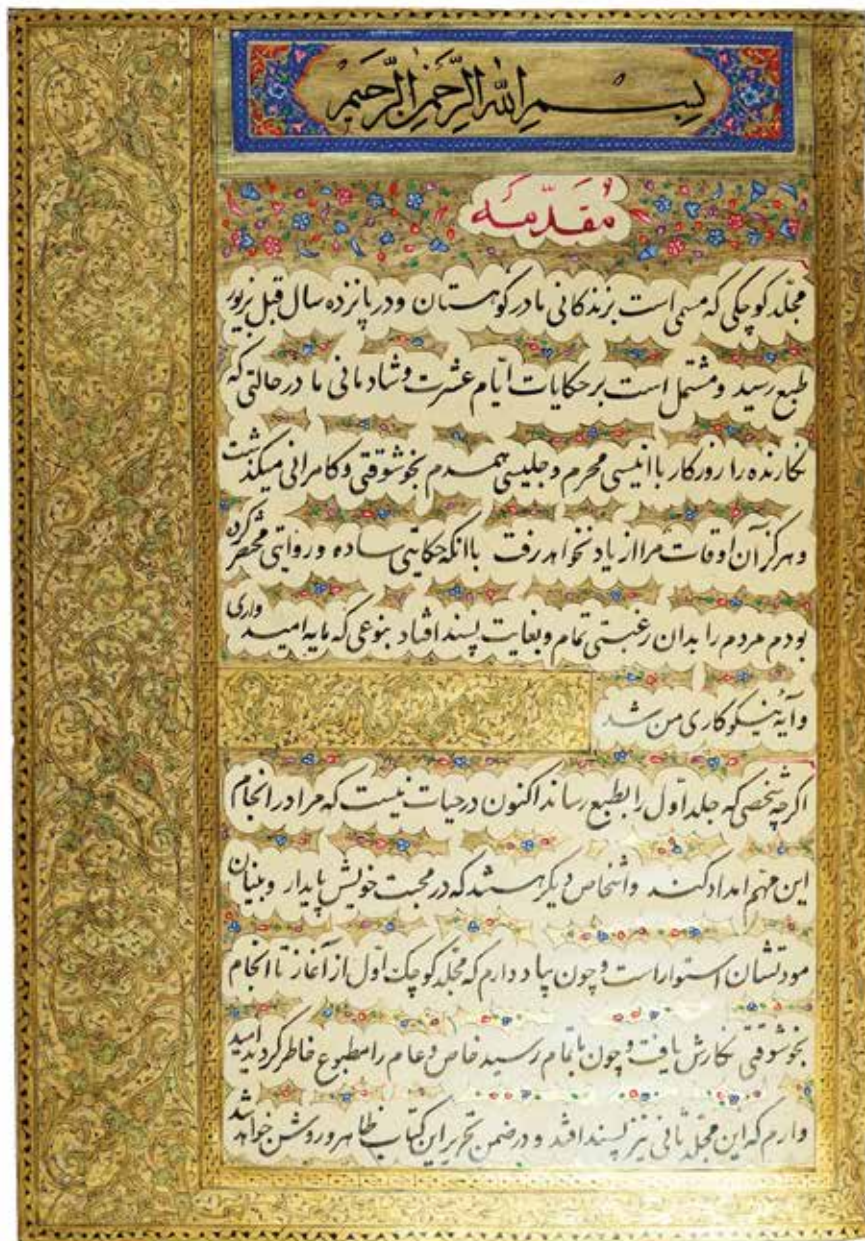 بِسْمِ اللهِ الرَّحْمٰنِ الرَّحِیْمِ
مُقدّمه
مجلّد کوچکی که مسمی است بزندکانی ما در کوهستان و در پانزده سال قبل بزیور
طبع رسید و مشتمل است بر حکایات ایّام عشرت و شادمانی ما در حالتی که
نکارنده را روزکار با انیسی محرم و جلیسی همدم بخوشوقتی و کامرانی میکذشت
و هرکز آن اوقات مرا از یاد نخواهد رفت با انکه حکایتی ساده و روایتی مختصر کرده
بودم مردم را بدان رغبتی تمام و بغایت پسند افتاد بنوعی که مایه امیدواری
و آیه نیکوکاری من شد
اکرچه شخصی که جلد اوّل را بطبع رساند اکنون در حیات نیست که مرا در انجام
این مهّم امداد کند و اشخاص دیکر هستند که در محبت خویش پایدار و بنیان
مودتشان استوار است و چون بیاد دارم که مجلّد کوچک اوّل از آغاز تا انجام
بخوشوقتی نکارش یافت و چون باتمام رسید خاص و عام را مطبوع خاطر کردید امید
وارم که این مجلّد ثانی نیز پسند افتد و در ضمن تحریر این کتاب ظاهر و روشن خواهد شد